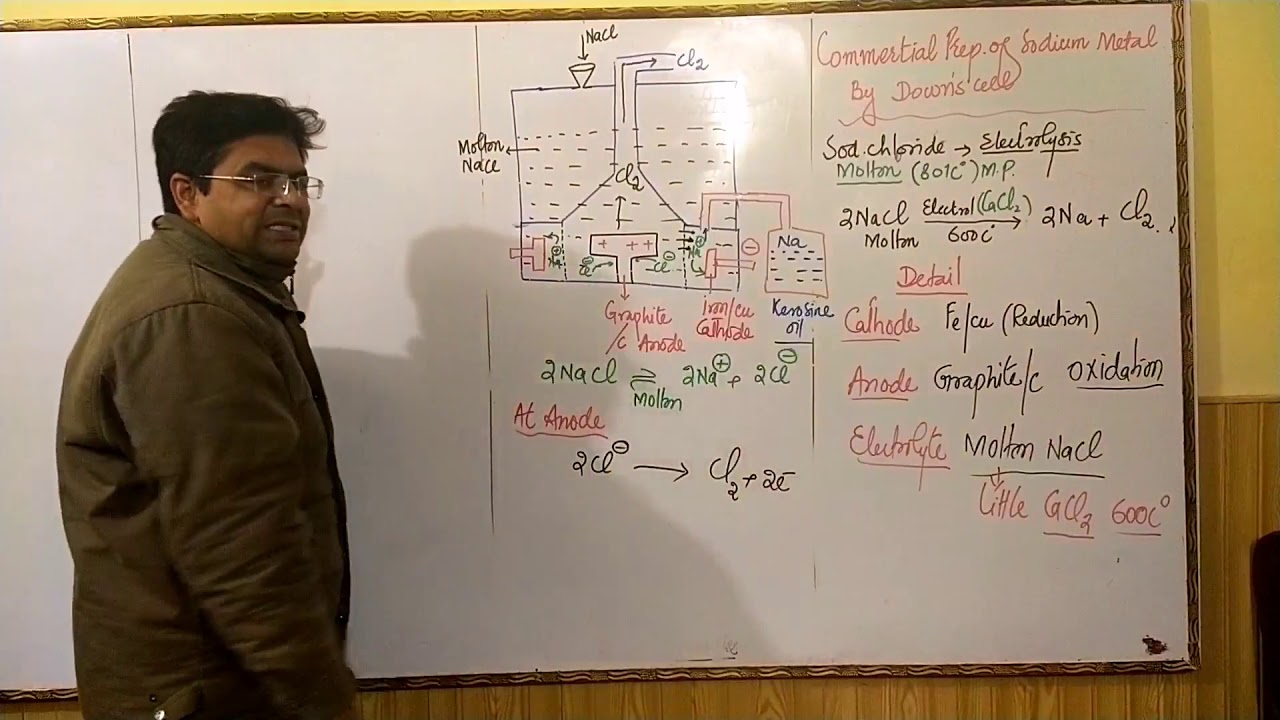 NaCl
Cl2
Molton
NaCl
Cl2
+ + +
Na⊕
Cl⊖
Cl⊖
⊕
Na
⊖
Na
Graphite
/C Anode
Iron/cu
Cathode
Kerosine
oil
2NaCl ⇌ 2Na⊕ + 2Cl⊖
Molton
At Anode
2Cl⊖ → Cl2 + 2e-
Commertial Prep. of Sodium Metal
By Down's cell
Sod. chloride → Electrolysis
Molton (801C°) M.P.
2NaCl Electrol (CaCl2) → 2Na + Cl2
Molton 600C°
Detail
Cathode Fe/cu (Reduction)
Anode Graphite/c Oxidation
Electrolyte Molton NaCl
Little CaCl2 600C°